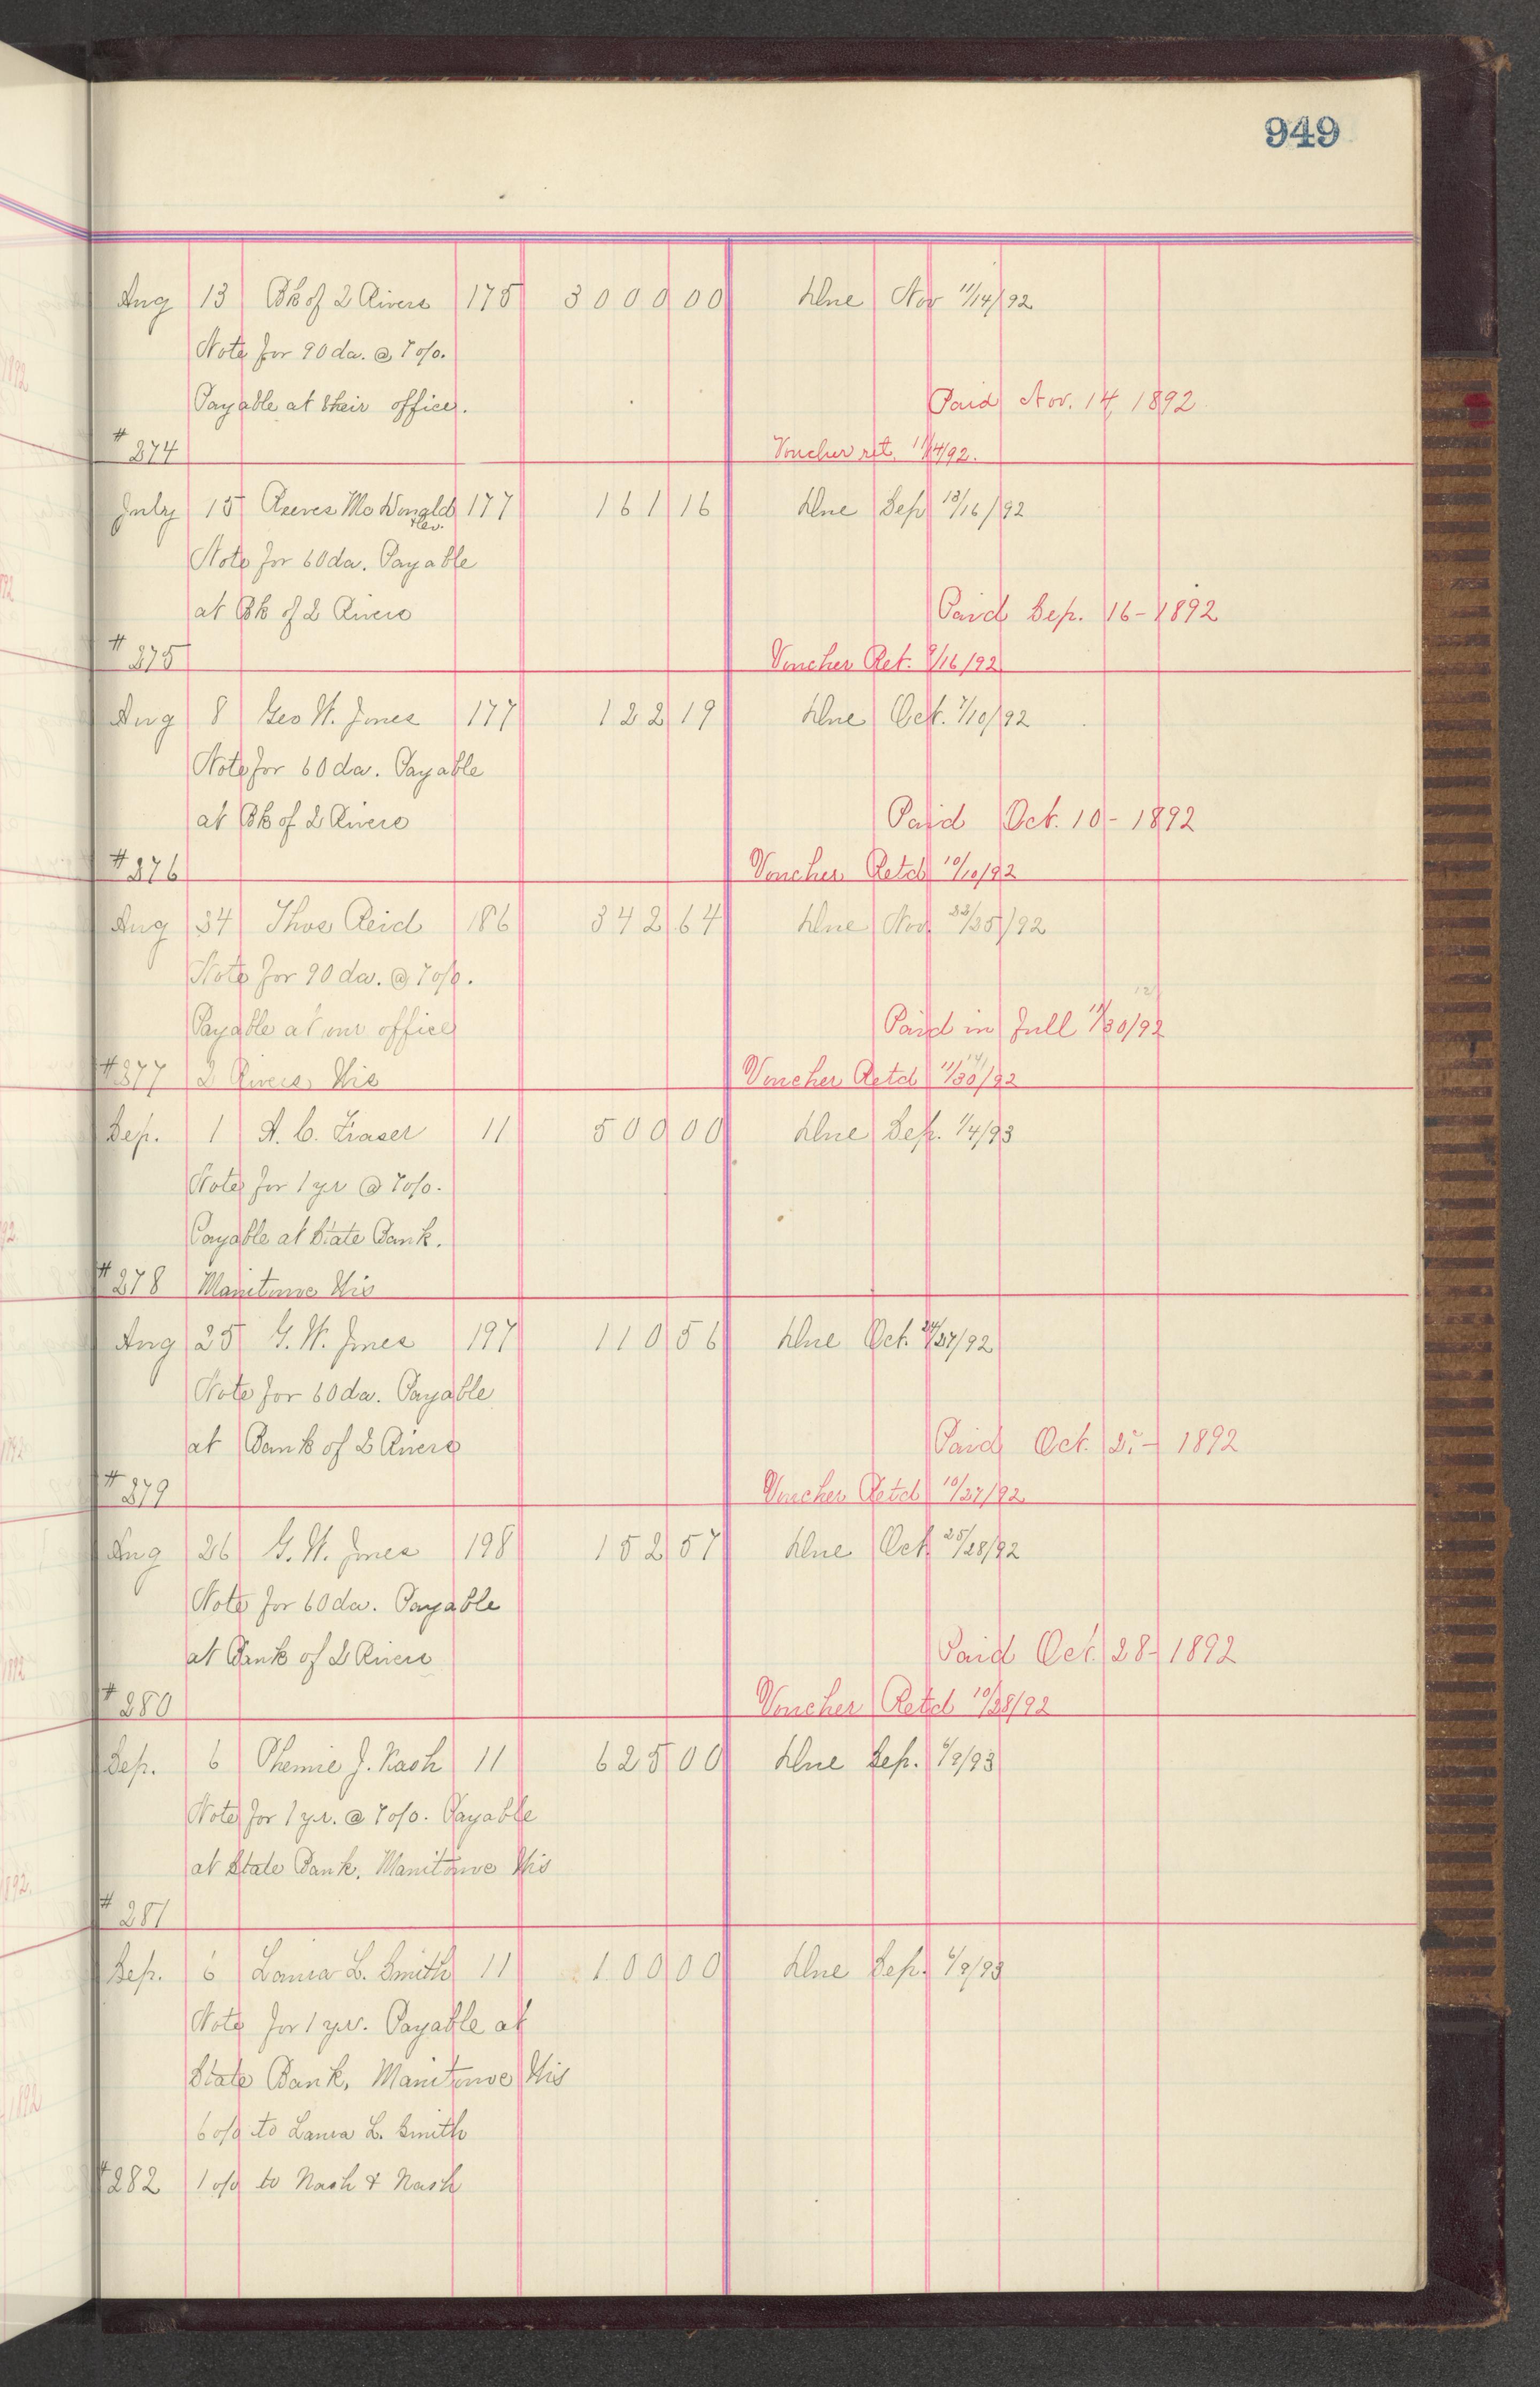 949
Aug 13 Bk of 2 Rivers 175 3000 00 Due Nov 11/14/92
Note for 90 da. @ 7 o/o.
Payable at their office. Paid Nov. 14, 1892
# 274 Voucher ret. 11/14/92.
July 15 Reeves McDonald 177 161 16 Due Sep 13/16/92
Note for 60 da. Payable
at Bk of 2 Rivers Paid Sep. 16 - 1892
# 275 Voucher Ret. 9/16/92
Aug 8 Geo W. Jones 177 122 19 Due Oct. 7/10/92
Note for 60 da. Payable
at Bk of 2 Rivers Paid Oct. 10 - 1892
# 276 Voucher Retd 10/10/92
Aug 24 Thos Reid 186 342 64 Due Nov /25/92
Note for 90 da. @ 7 o/o.
Payable at our office Paid in full 11/30/92
# 277 2 Rivers Wis Voucher Retd 11/30/92
Sep. 1 A. C. Fraser 11 500 00 Due Sep. 1/4/93
Note for 1 yr @ 7 o/o.
Payable at State Bank.
# 278 Manitowoc Wis
Aug 25 G. W. Jones 197 110 56 Due Oct. 24/27/92
Note for 60 da. Payable
at Bank of 2 Rivers Paid Oct. - 1892
# 279 Voucher Retd 10/27/92
Aug 26 G. W. Jones 198 152 57 Due Oct 25/28/92
Note for 60 da. Payable
at Bank of 2 Rivers Paid Oct. 28 - 1892
# 280 Voucher Retd 10/28/92
Sep. 6 Phemie J. Nash 11 625 00 Due Sep. 6/9/93
Note for 1 yr. @ 7 o/o. Payable
at State Bank, Manitowoc Wis
# 281
Sep. 6 Laura L. Smith 11 100 00 Due Sep. 6/9/93
Note for 1 yr. Payable at
State Bank, Manitowoc Wis
6 o/o to Laura L. Smith
# 282 1 o/o to Nash & Nash